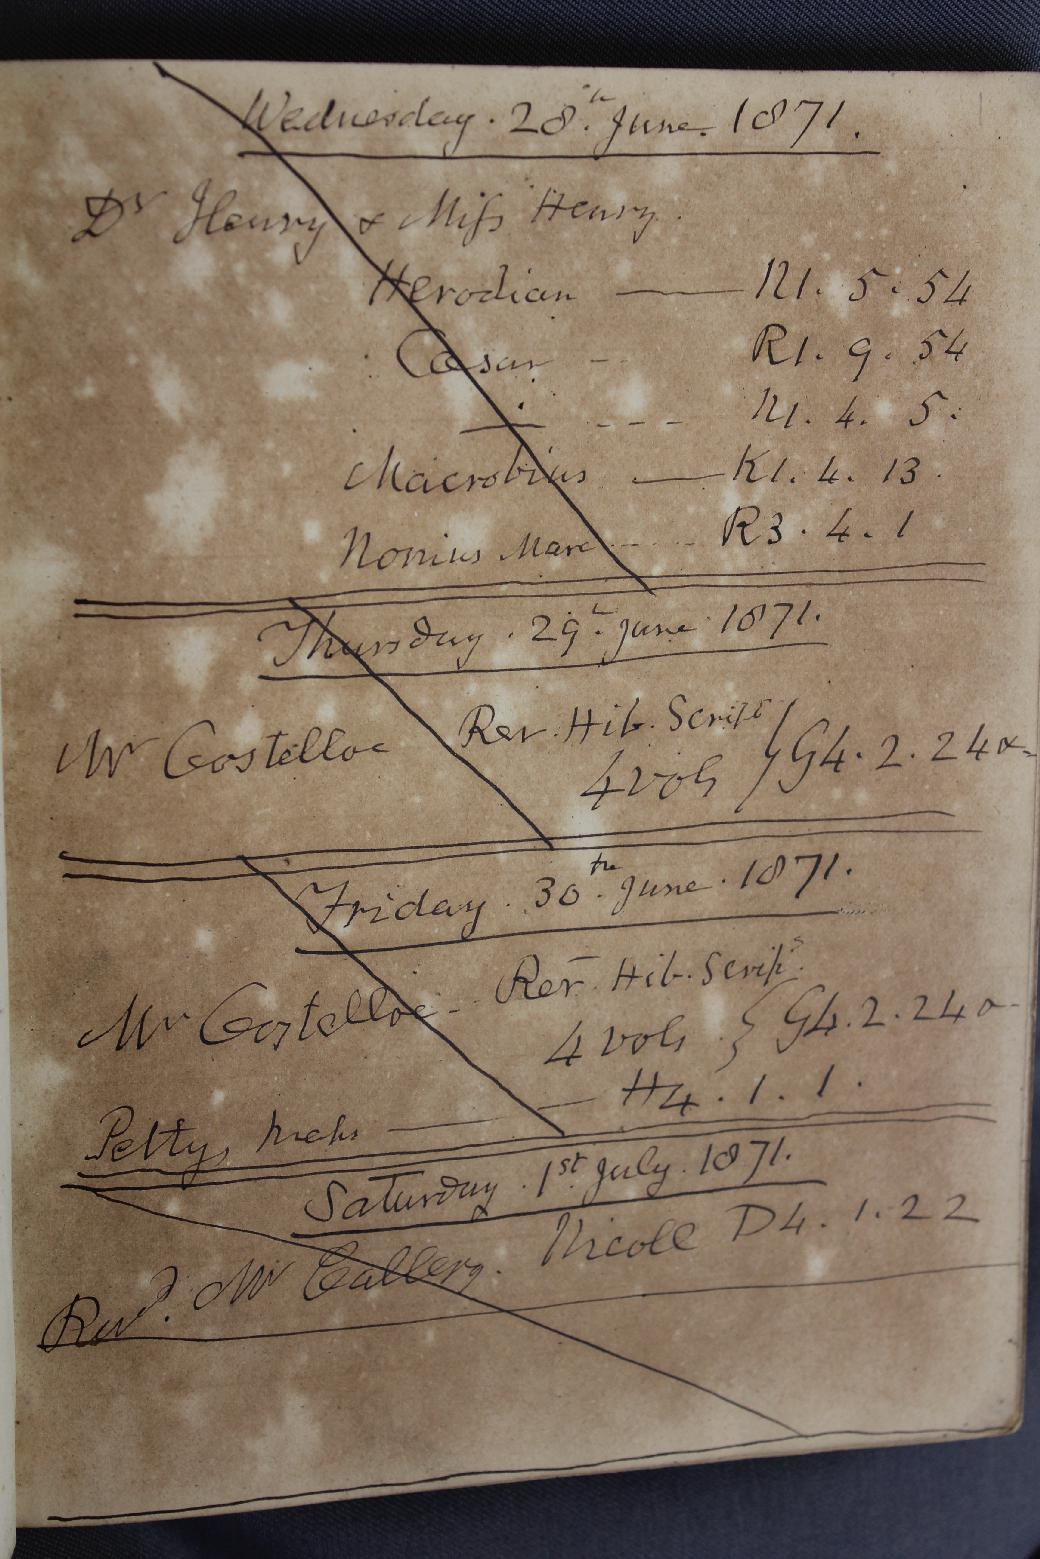 Wednesday. 28th. June. 1871.
Dr Henry & Miss Henry.
Herodian — N1. 5. 54
Cæsar - - R1. 9. 54
—÷— - - - N1. 4. 5.
Macrobius — K1. 4. 13.
Nonius Marc ---- R3. 4. 1
Thursday. 29th June 1871.
Mr Costelloe Rer. Hib. Script
4 vols } G4. 2. 24 a-
Friday. 30th. June. 1871.
Mr Costelloe - Rer Hib. Script.
4 vols } G4. 2. 24 a-
Petty, — H4. 1. 1.
Saturday. 1st July. 1871.
Revd. Mr Callery. Nicoll D4. 1. 22